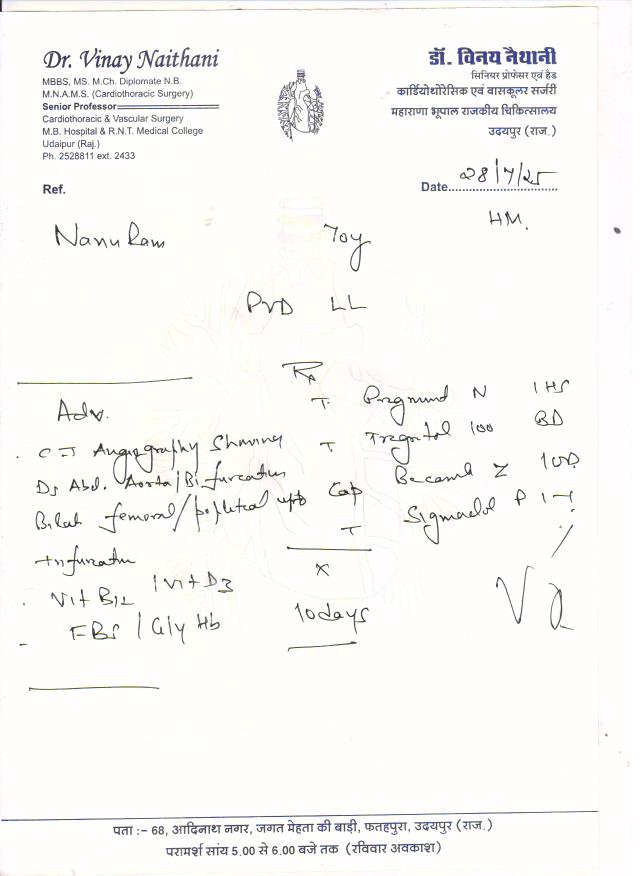 Dr. Vinay Naithani
MBBS, MS. M.Ch. Diplomate N.B.
M.N.A.M.S. (Cardiothoracic Surgery)
Senior Professor
Cardiothoracic & Vascular Surgery
M.B. Hospital & R.N.T. Medical College
Udaipur (Raj.)
Ph. 2528811 ext. 2433
डॉ. विनय नैथानी
सिनियर प्रोफेसर एवं हैड
कार्डियोथोरेसिक एवं वासकूलर सर्जरी
महाराणा भूपाल राजकीय चिकित्सालय
उदयपुर (राज.)
Ref.
Date 28/7/25
HM.
Nanu Ram 70y
PVD LL
Adv.
CT Angiography Showing
Ds Abd. Aorta/Bifurcation
Bilat femoral/popliteal upto
trifurcation
Vit B12 / Vit D3
FBS / Gly Hb
Rx
T. N 1 HS
T Tregtol 100 BD
Cap Z 1 OD
T P
x
10 days
पता :– 68, आदिनाथ नगर, जगत मेहता की बाड़ी, फतहपुरा, उदयपुर (राज.)
परामर्श सांय 5.00 से 6.00 बजे तक (रविवार अवकाश)